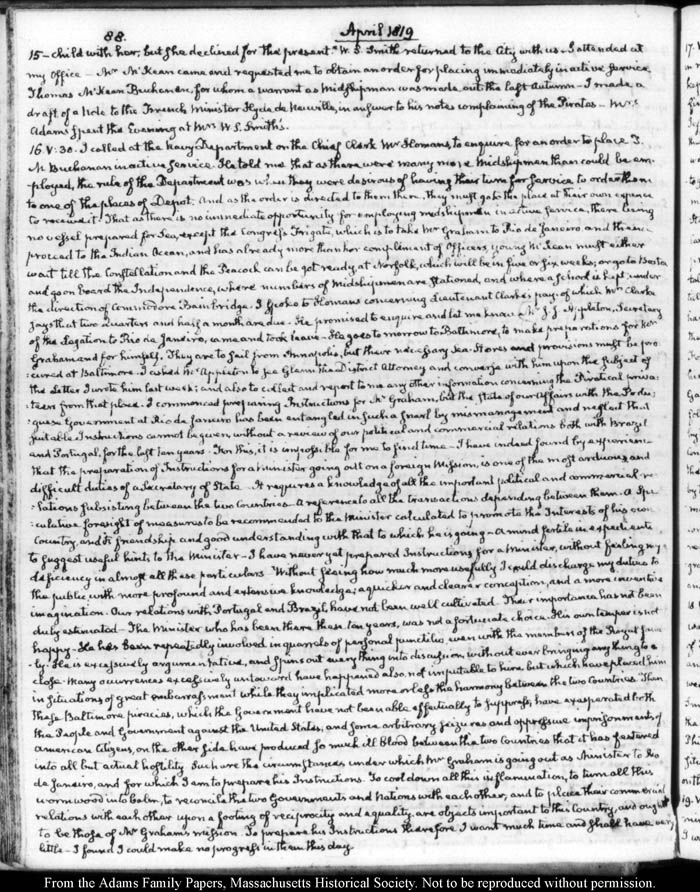 88.
April 1819
15 - child with her; but she declined for the present. W. S. Smith returned to the City with us. I attended at
my Office - Mr McKean came and requested me to obtain an order for placing immediately in active service,
Thomas McKean Buchanan, for whom a warrant as Midshipman was made out the last Autumn - I made a
draft of a Note to the French Minister Hyde de Neuville, in answer to his notes complaining of the Pirates - Mrs
Adams spent the Evening at Mrs W. S. Smith's.
16. V:30. I called at the Navy Department on the Chief Clerk Mr Homans, to enquire for an order to place T.
M. Buchanan in active service. He told me that as there were many more Midshipmen than could be em-
ployed, the rule of the Department was when they were desirous of having their turn for service to order them
to one of the places of Depot. And as the order is directed to them there, they must go to the place at their own expence
to receive it. That as there is no immediate opportunity for employing midshipmen in active service, there being
no vessel prepared for Sea, except the Congress Frigate, which is to take Mr Graham to Rio de Janeiro and thence
proceed to the Indian Ocean, and has already more than her complement of Officers, young McKean must either
wait till the Constellation and the Peacock can be got ready at Norfolk, which will be in five or six weeks; or go to Boston
and go on board the Independence, where numbers of Midshipmen are stationed, and where a School is kept under
the direction of Commodore Bainbridge. I spoke to Homans concerning Lieutenant Clarke's pay: of which Mrs Clarke
says that two Quarters and half a month are due. He promised to enquire and let me know. Mr J. J. Appleton, Secretary
of the Legation to Rio de Janeiro, came and took leave. He goes to morrow to Baltimore, to make preparations for Mr
Graham and for himself. They are to sail from Annapolis, but their necessary Sea-Stores and provisions must be pro-
:cured at Baltimore. I asked Mr Appleton to see Glenn the District Attorney and converse with him upon the subject of
the Letter I wrote him last week; and also to collect and report to me any other information concerning the Piratical priva-
:teers from that place. I commenced preparing Instructions for Mr Graham, but the state of our Affairs with the Portu-
:guese Government at Rio de Janeiro has been entangled in such a snarl by mismanagement and neglect that
suitable Instructions cannot be given, without a review of our political and commercial relations both with Brazil
and Portugal, for the last ten years. For this, it is impossible for me to find time - I have indeed found by experience
that the preparation of Instructions for a Minister going out on a foreign Mission, is one of the most arduous and
difficult duties of a Secretary of State. It requires a knowledge of all the important political and commercial re-
:lations subsisting between the two Countries. A reference to all the transactions depending between them. A spe-
:culative foresight of measures to be recommended to the Minister calculated to promote the Interests of his own
Country, and its friendship and good understanding with that to which he is going - A mind fertile in expedients
to suggest useful hints to the Minister - I have never yet prepared Instructions for a Minister, without feeling my
deficiency in almost all these particulars. Without feeling how much more usefully I could discharge my duties to
the public with more profound and extensive knowledge; a quicker and clearer conception; and a more inventive
imagination. Our relations with Portugal and Brazil, have not been well cultivated. Their importance has not been
duly estimated - The Minister who has been there these ten years, was not a fortunate choice. His own temper is not
happy. He has been repeatedly involved in quarrels of personal punctilio, even with the members of the Royal fami-
:ly. He is excessively argumentative, and spins out every thing into discussion, without ever bringing any thing to a
close. Many occurrences excessively untoward have happened also, not imputable to him, but which have placed him
in situations of great embarrassment while they implicated more or less the harmony between the two Countries. Then
these Baltimore piracies, which the Government have not been able effectually to suppress, have exasperated both
the People and Government against the United States, and some arbitrary seizures and oppressive imprisonments of
American Citizens, on the other side have produced so much ill blood between the two Countries that it has festered
into all but actual hostility. Such are the circumstances under which Mr Graham is going out as Minister to Rio
de Janeiro, and for which I am to prepare his Instructions. To cool down all this inflammation, to turn all this
wormwood into balm, to reconcile the two Governments and Nations with each other, and to place their commercial
relations with each other upon a footing of reciprocity and equality are objects important to this Country, and ought
to be those of Mr Graham's mission. To prepare his Instructions therefore I want much time and shall have very
little - I found I could make no progress in them this day.
From the Adams Family Papers, Massachusetts Historical Society. Not to be reproduced without permission.